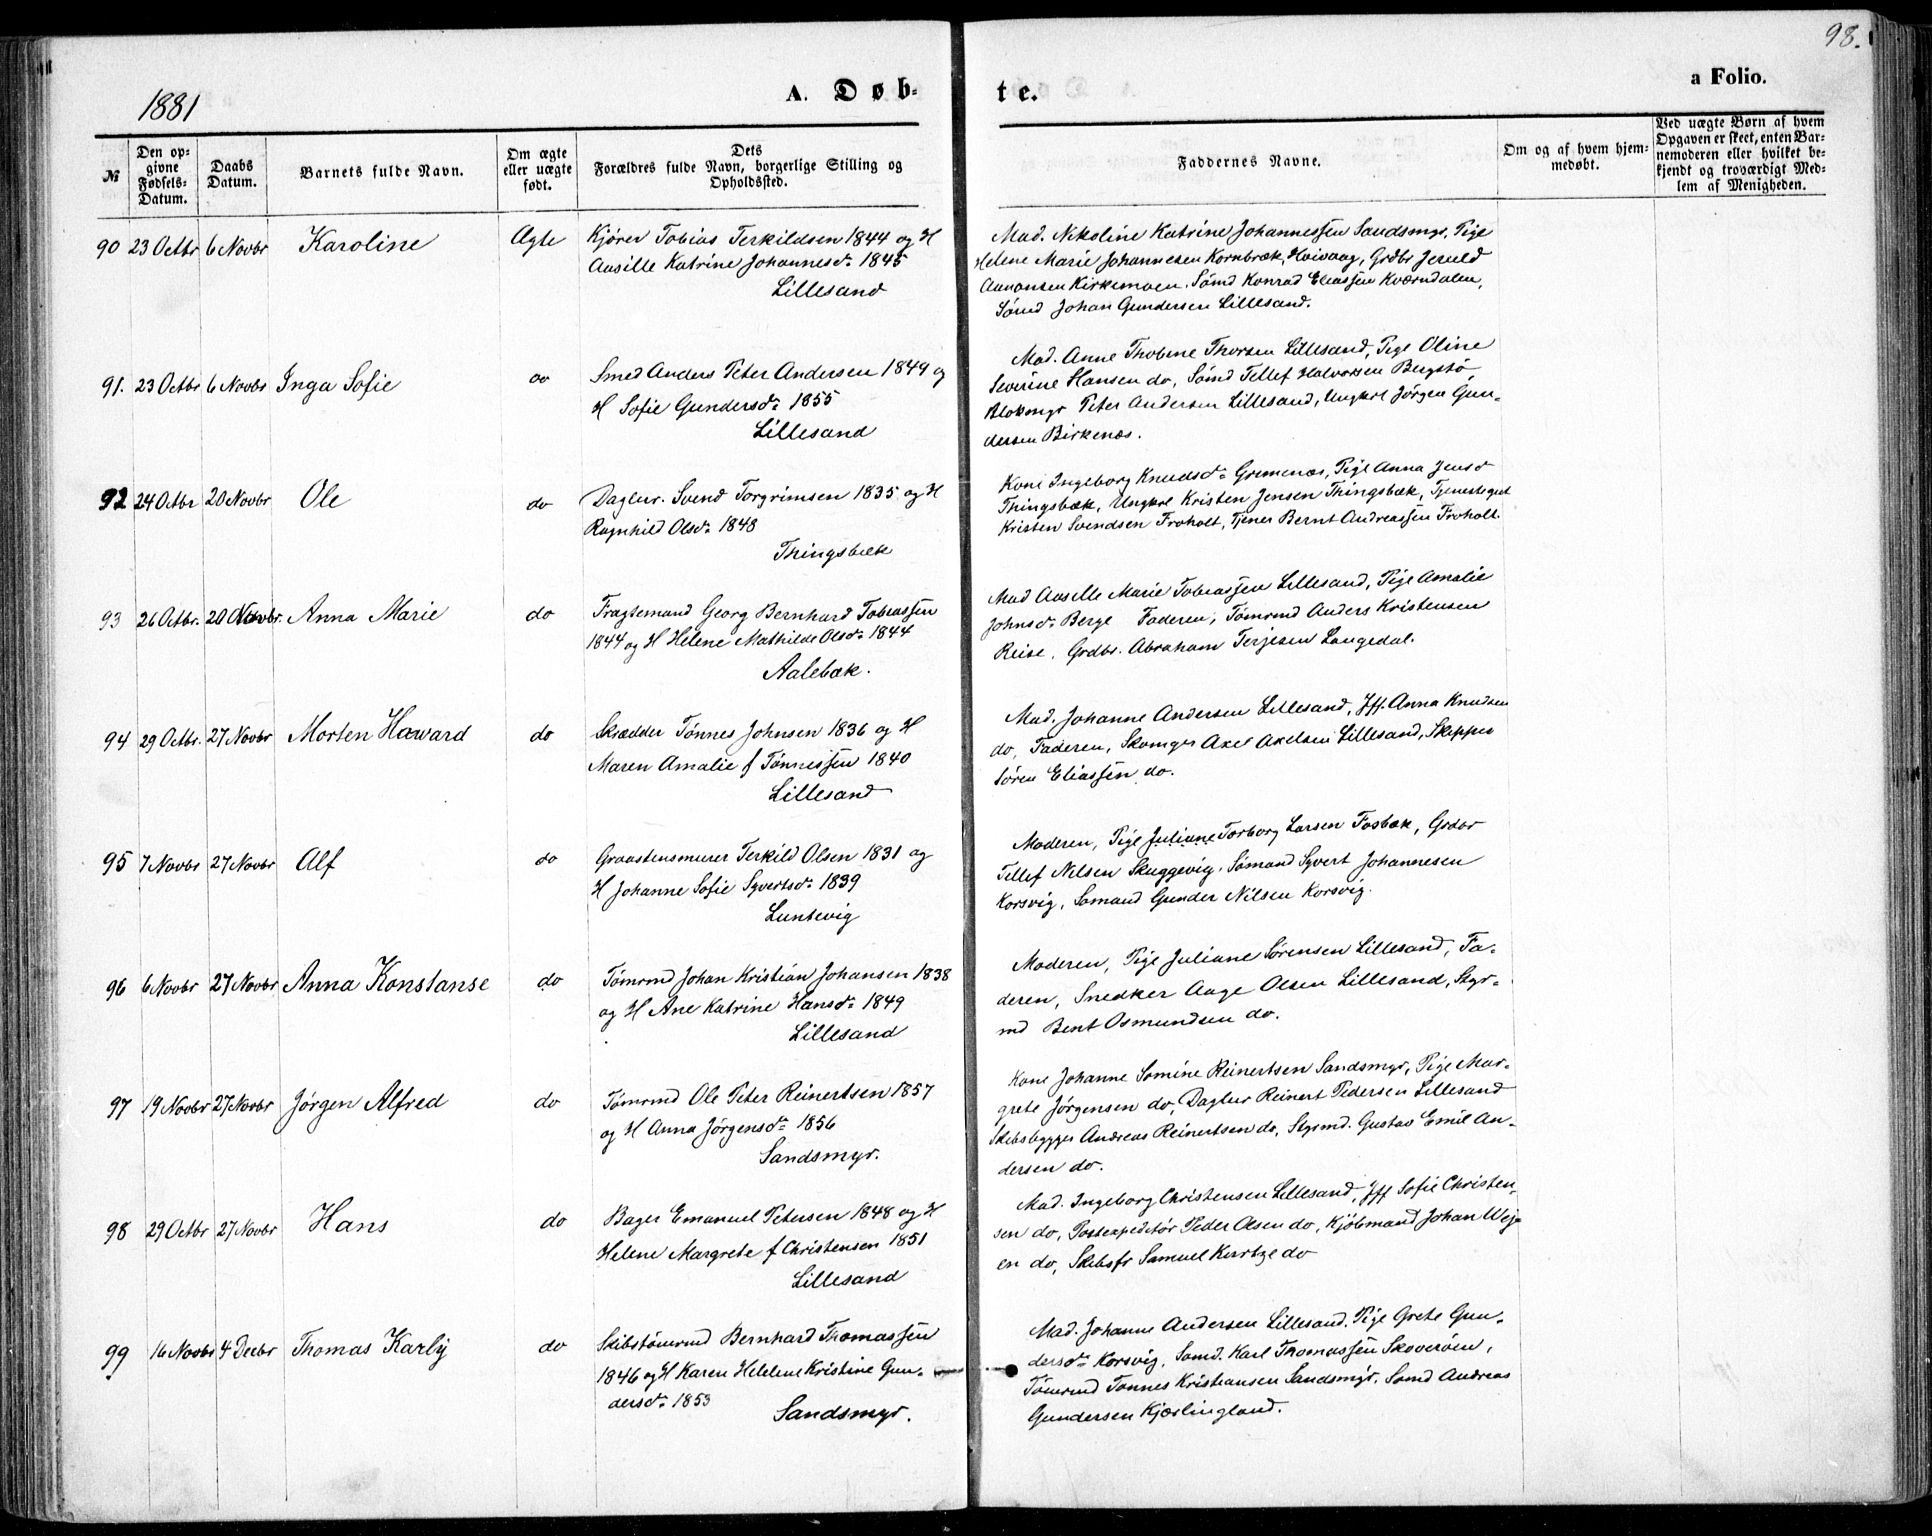 98.
1881
A. Døb-
te.
a Folio.
№
Den op-
givne
Fødsels-
Datum.
Daabs
Datum.
Barnets fulde Navn.
Om ægte
eller uægte
født.
Dets
Forældres fulde Navn, borgerlige Stilling og
Opholdssted.
Faddernes Navne.
Om og af hvem hjem-
medøbt.
Ved uægte Børn af hvem
Opgaven er skeet, enten Bar-
nemoderen eller hvilket be-
kjendt og troværdigt Med-
lem af Menigheden.
90 23 Octbr 6 Novbr Karoline Ægte Kjører Tobias Terkildsen 1844 og H
Aasille Katrine Johannesd. 1845
Lillesand
Mad. Nikoline Katrine Johannessen Sandsmyr, Pige
Helene Marie Johannesen Kornbræk, Hoivaag, Grdbr Jeruld
Aanonsen Kirkemoen. Sømd Konrad Eliassen Kværndalen,
Sømd Johan Gundersen Lillesand.
91. 23 Octbr 6 Novbr Inga Sofie do Smed Anders Peter Andersen 1849 og
H Sofie Gundersd. 1855
Lillesand
Mad. Anne Thobine Thorsen Lillesand, Pige Oline
Severine Hansen do, Sømd Tellef Halvorsen Bergstø
Blokmgr Peter Andersen Lillesand, Ungkrl Jørgen Gun-
dersen Birkenæs.
92 24 Octbr 20 Novbr Ole do Daglnr. Svend Torgrimsen 1835 og H
Ragnhild Olsd. 1848
Thingsbæk
Kone Ingeborg Knudsd. Grimenæs, Pige Anna Jensd
Thingsbæk, Ungkrl Kristen Jensen Thingsbæk, Tjenestegut
Kristen Svendsen Froholt, Tjener Bernt Andreassen Froholt.
93 26 Octbr. 20 Novbr. Anna Marie do Fragtemand Georg Bernhard Tobiassen
1844 og H Helene Mathilde Olsd. 1844
Aalebæk.
Mad Aasille Marie Tobiassen Lillesand, Pige Amalie
Johnsd. Berge Faderen, Tømrmd Anders Kristensen
Reise, Grdbr. Abraham Terjesen Langedal.
94 29 Octbr. 27 Novbr Morten Haward do Skrædder Tønnes Johnsen 1836 og H
Maren Amalie f Tønnessen 1840
Lillesand
Mad. Johanne Andersen Lillesand, Jfr. Anna Knudsen
do, Faderen, Skomgr Axel Axelsen Lillesand, Skipper
Søren Eliassen do.
95 7 Novbr 27 Novbr Alf do Graastensmurer Terkild Olsen 1831 og
H Johanne Sofie Syvertsd. 1839
Luntevig
Moderen, Pige Juliane Torborg Larsen Fosbæk, Grdbr
Tellef Nilsen Skuggevig, Sømand Syvert Johannesen
Korsvig, Sømand Gunder Nilsen Korsvig.
96 6 Novbr 27 Novbr Anna Konstanse do Tømrmd Johan Kristian Johansen 1838
og H Ane Katrine Hansd. 1849
Lillesand
Moderen, Pige Juliane Sørensen Lillesand, Fa-
deren, Snedker Aage Olsen Lillesand, Styr-
md Bent Osmundsen do.
97 19 Novbr 27 Novbr Jørgen Alfred do Tømrmd Ole Peter Reinertsen 1857
og H Anna Jørgensd. 1856
Sandsmyr.
Kone Johanne Somine Reinertsen Sandsmyr, Pige Mar-
grete Jørgensen do, Daglnr Reinert Pedersen Lillesand
Skibsbygger Andreas Reinertsen do, Styrmd. Gustav Emil An-
dersen do.
98 29 Octbr 27 Novbr Hans do Bager Emanuel Petersen 1848 og H
Helene Margrete f Christensen 1851
Lillesand
Mad. Ingeborg Christensen Lillesand, Jfr Sofie Christen-
sen do, Postexpeditør Peder Olsen do, Kjöbmand Johan Wej-
en do, Skibsfr Samuel do
99 16 Novbr 4 Decbr Thomas Karby do Skibstømrmd Bernhard Thomassen
1846 og H Karen Helene Kristine Gun-
dersd. 1853
Sandsmyr.
Mad. Johanne Andersen Lillesand. Pige Grete Gun-
dersd. Korsvig, Sømd. Karl Thomassen Skoverøen,
Tømrmd Tønnes Kristiansen Sandsmyr. Sømd Andreas
Gundersen Kjærlingland.